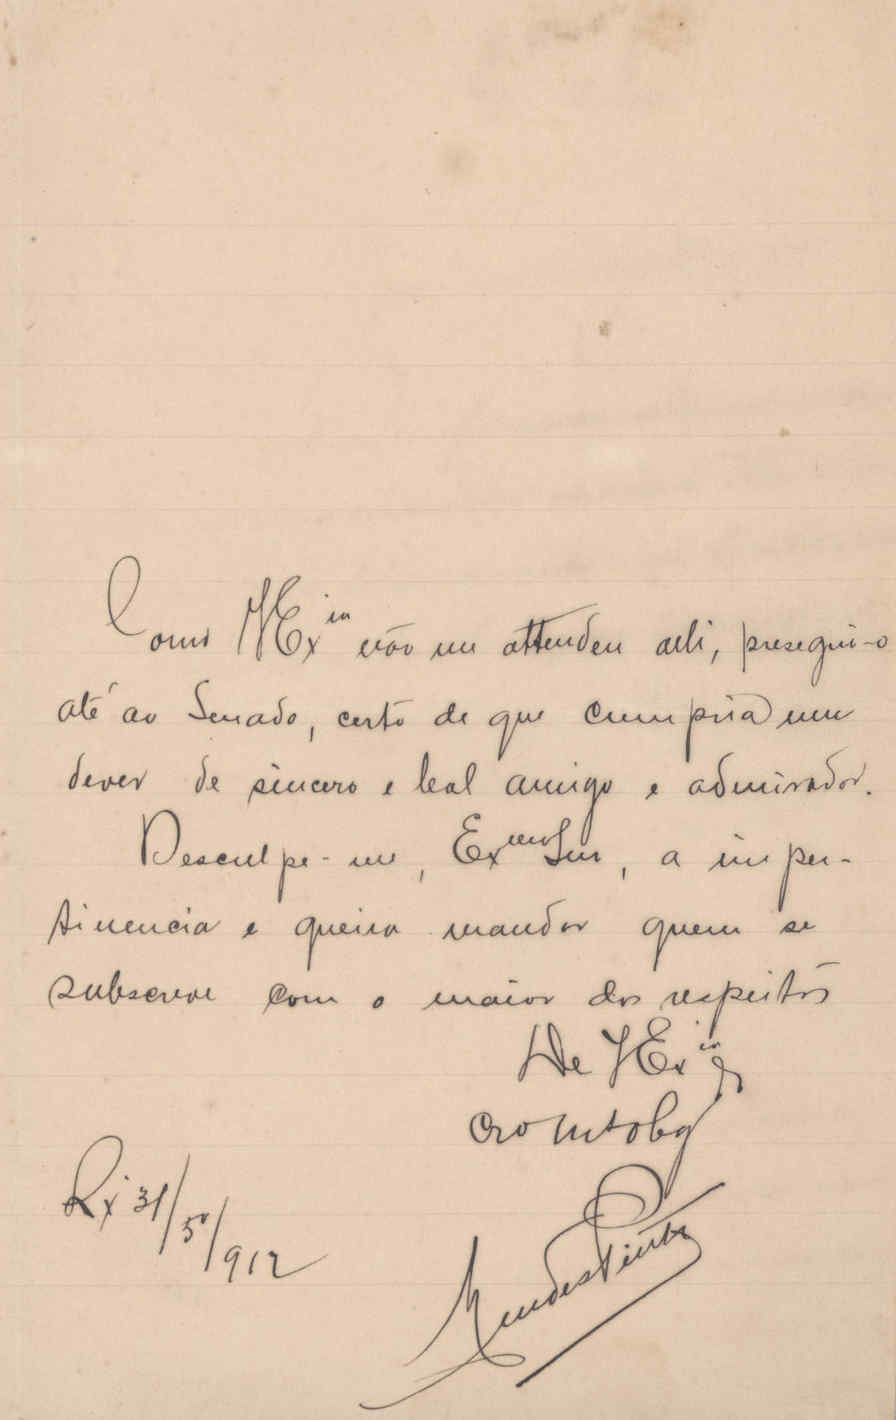 Como V Ex.ia não me attendeu alli, presegui-o
até ao Senado, certo de que cumpria um
dever de sincero e leal amigo e admirador.
Desculpe-me, Ex.mo Snr, a imper-
tinencia e queira mandar quem se
subscreve com o maior dos respeitos
De V Ex.ia
Cro Mto Obg
Rx 31/5/912
Mendes Pinto